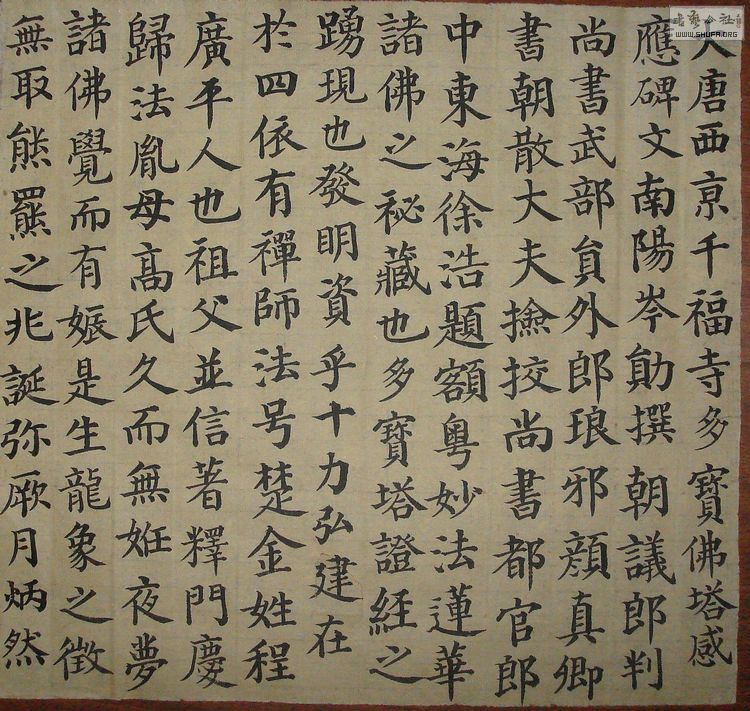 大唐西亰千福寺多寶佛塔感
應碑文南陽岑勛撰朝議郎判
尚書武部員外郎琅邪顏真卿
書朝散大夫撿挍尚書都官郎
中東海徐浩題額粵妙法蓮華
諸佛之秘藏也多寶塔證經之
踴現也發明資乎十力弘建在
於四依有禪師法号楚金姓程
廣平人也祖父並信著釋門慶
歸法胤母高氏久而無姙夜夢
諸佛覺而有娠是生龍象之徵
無取熊羆之兆誕弥厥月炳然
WWW.SHUFA.ORG